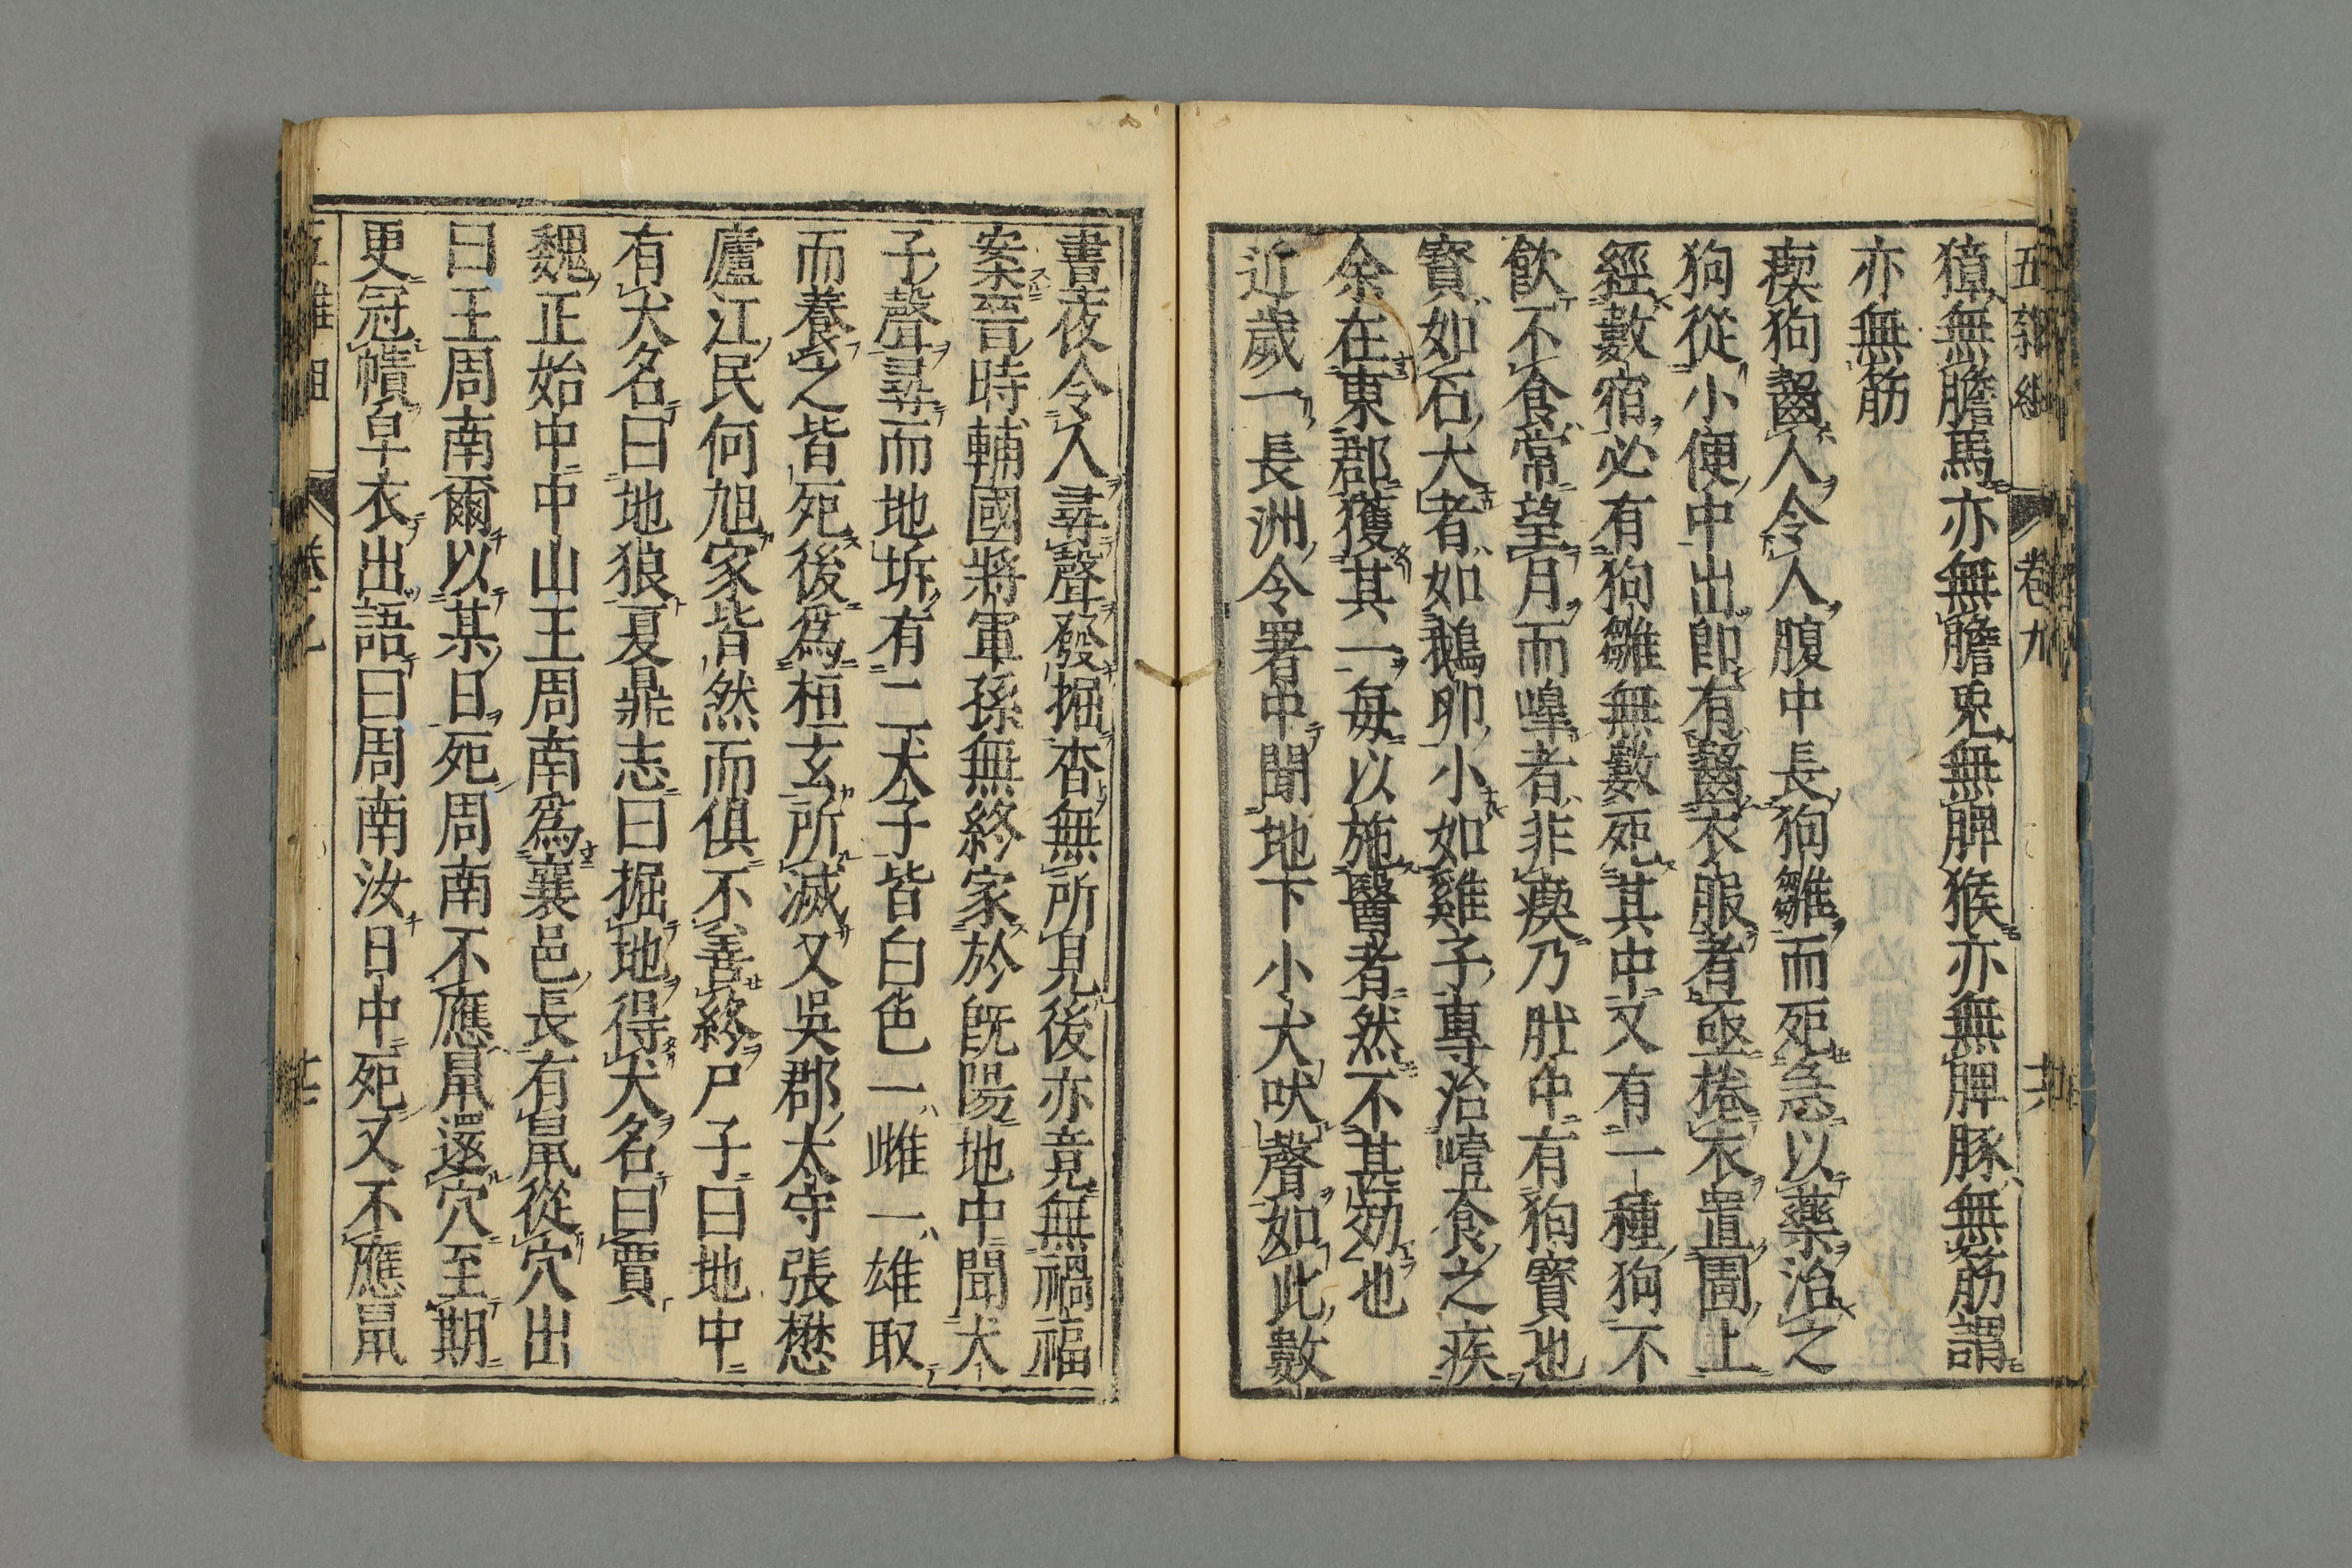 五雜組 卷九
獐無膽馬亦無膽兎無脾猴亦無脾豚無筋謂
亦無筋
瘈狗齧人令人腹中長狗雛而死急以藥治之
狗從小便中出卽有齧衣服者亟捲衣置圊上
經數宿必有狗雛無數死其中又有一種狗不
飮不食常望月而嘷者非瘈乃肚中有狗寳也
寳如石大者如鵝卵小如雞子專治噎食之疾
余在東郡獲其一每以施醫者然不甚効也
近歲一長洲令署中聞地下小犬吠聲如此數
晝夜令人尋聲發掘杳無所見後亦竟無禍福
案晉時輔國將軍孫無終家於旣陽地中聞犬
子聲尋而地坼有二犬子皆白色一雌一雄取
而養之皆死後爲桓玄所滅又吳郡太守張懋
廬江民何旭家皆然而俱不善終尸子曰地中
有犬名曰地狼夏鼎志曰掘地得犬名曰賈
魏正始中中山王周南爲襄邑長有鼠從穴出
曰王周南爾以某日死周南不應鼠還穴至期
更冠幘皁衣出語曰周南汝日中死又不應鼠